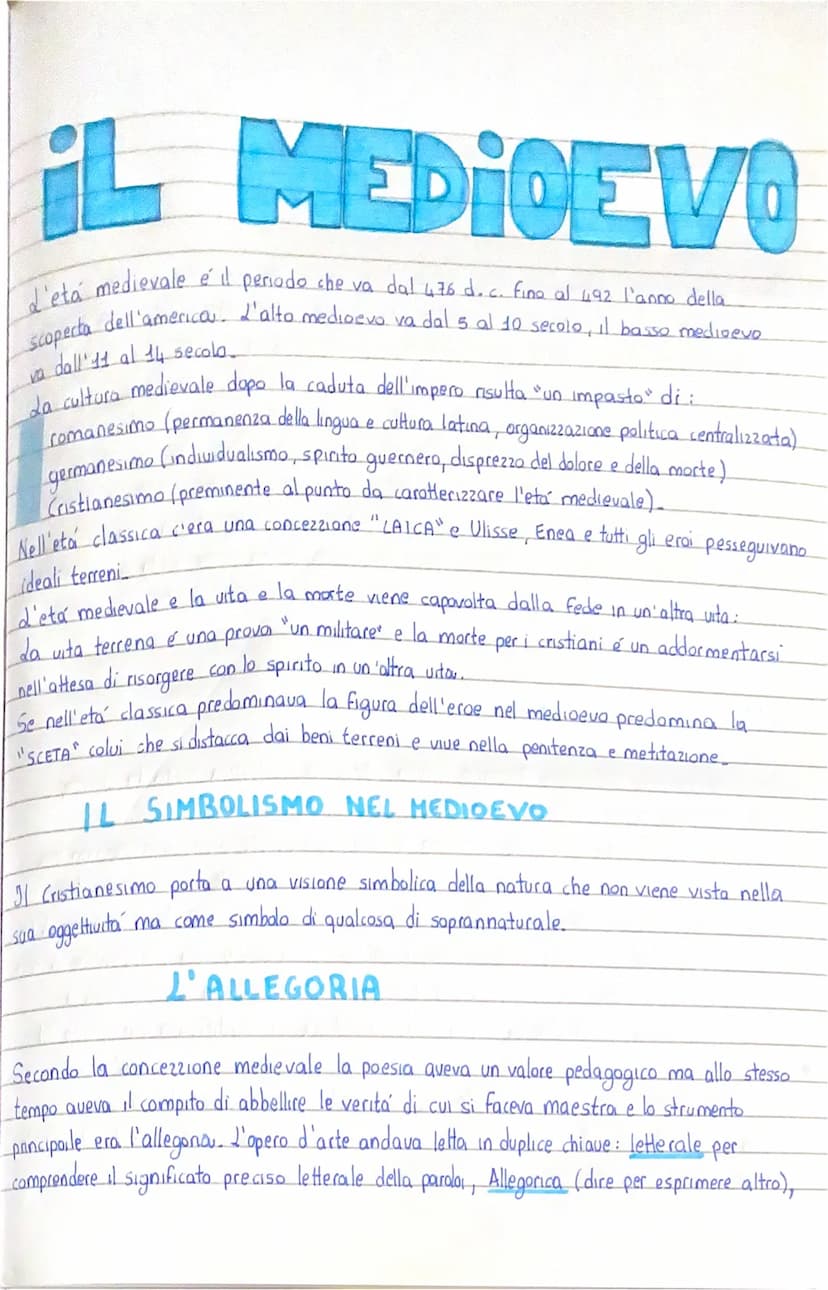 iL MEDiOEVO
L'etá medievale é il periodo che va dal 476 d.c. fino al 492 l'anno della
scoperta dell'america. L'alto medioevo va dal 5 al 10 secolo, il basso medioevo
va dall'11 al 14 secolo.
La cultura medievale dopo la caduta dell'impero risulta "un impasto" di:
romanesimo (permanenza della lingua e cultura latina, organizzazione politica centralizzata)
germanesimo (individualismo, spirito guerriero, disprezzo del dolore e della morte)
Cristianesimo (preminente al punto da caratterizzare l'etá medievale).
Nell'etá classica c'era una concezzione "LAICA" e Ulisse, Enea e tutti gli eroi pesseguivano
ideali terreni.
L'etá medievale e la vita e la morte viene capovolta dalla fede in un'altra vita:
La vita terrena é una prova "un militare" e la morte per i cristiani é un addormentarsi
nell'attesa di risorgere con lo spirito in un'altra vita.
Se nell'etá classica predominava la figura dell'eroe nel medioevo predomina la
"SCETA" colui che si distacca dai beni terreni e vive nella penitenza e metitazione.
IL SIMBOLISMO NEL MEDIOEVO
Il Cristianesimo porta a una visione simbolica della natura che non viene vista nella
sua oggettivitá ma come simbolo di qualcosa di soprannaturale.
L'ALLEGORIA
Secondo la concezzione medievale la poesia aveva un valore pedagogico ma allo stesso
tempo aveva il compito di abbellire le veritá di cui si faceva maestra e lo strumento
principale era l'allegoria. L'opero d'arte andava letta in duplice chiave: letterale per
comprendere il significato preciso letterale della parola, Allegorica (dire per esprimere altro),